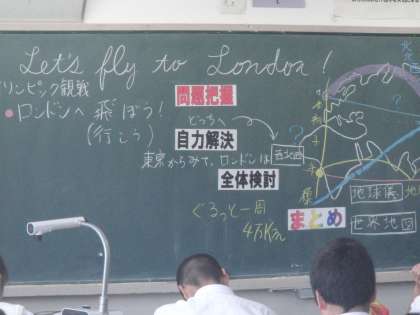 Let's fly to London!
リンピック観戦
ロンドンへ飛ぼう!
(行こう)
問題把握
どっちへ
自力解決
東京からみて、ロンドンは
西北西
?
全体検討
ぐるっと一周
4万Km
まとめ
地球儀
世界地図
?
北